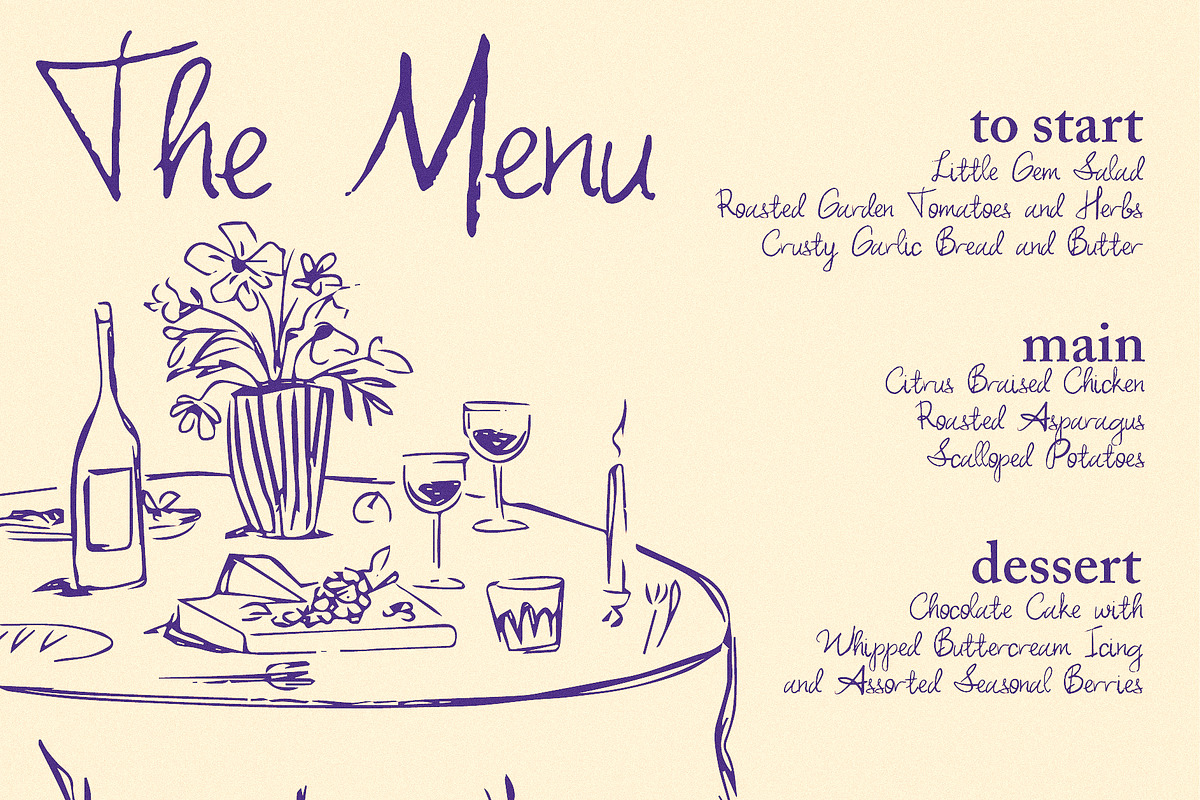 The Menu
to start
Little Gem Salad
Roasted Garden Tomatoes and Herbs
Crusty Garlic Bread and Butter
main
Citrus Braised Chicken
Roasted Asparagus
Scalloped Potatoes
dessert
Chocolate Cake with
Whipped Buttercream Icing
and Assorted Seasonal Berries